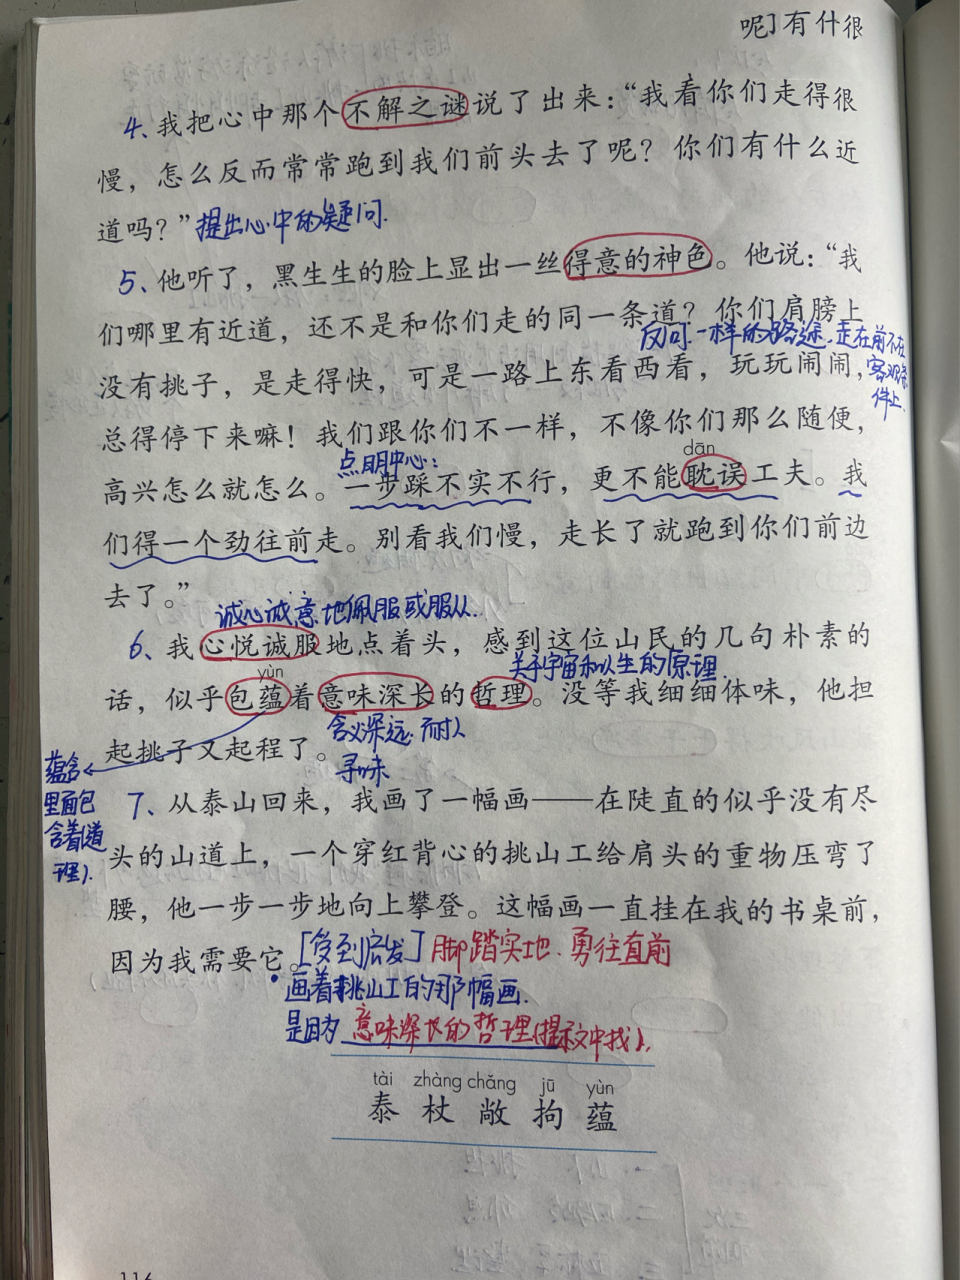 呢]有什很
4、我把心中那个不解之谜说了出来：“我看你们走得很
慢，怎么反而常常跑到我们前头去了呢？你们有什么近
道吗？”提出心中的疑问.
5、他听了，黑生生的脸上显出一丝得意的神色。他说：“我
们哪里有近道，还不是和你们走的同一条道？你们肩膀上
反问.一样的路途.走在前不在
没有挑子，是走得快，可是一路上东看西看，玩玩闹闹，
客观条
件上.
总得停下来嘛！我们跟你们不一样，不像你们那么随便，
点明中心：
dān
高兴怎么就怎么。一步踩不实不行，更不能耽误工夫。我
们得一个劲往前走。别看我们慢，走长了就跑到你们前边
去了。”
诚心诚意地佩服或服从.
6、我心悦诚服地点着头，感到这位山民的几句朴素的
yùn
关于宇宙和人生的原理.
话，似乎包蕴着意味深长的哲理。没等我细细体味，他担
含义深远.而耐人
起挑子又起程了。
寻味
蕴含
里面包
含着道
理）.
7、从泰山回来，我画了一幅画——在陡直的似乎没有尽
头的山道上，一个穿红背心的挑山工给肩头的重物压弯了
腰，他一步一步地向上攀登。这幅画一直挂在我的书桌前，
因为我需要它。[受到启发]脚踏实地.勇往直前
画着挑山工的那幅画.
是因为 意味深长的哲理
tài zhàng chǎng jū yùn
泰 杖 敞 拘 蕴
116